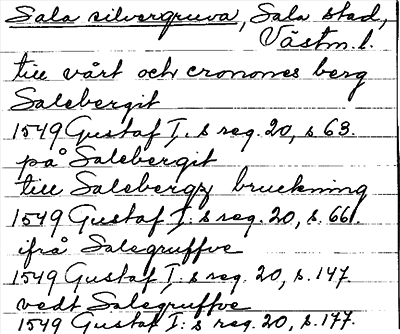 Sala silvergruva, Sala stad,
Västm. l.
till vårt och cronones berg
Salebergit
1549 Gustaf I:s reg. 20, s. 63.
på Salebergit
till Salebergz bruckning
1549 Gustaf I:s reg. 20, s. 66.
ifrå Salegruffve
1549 Gustaf I:s reg. 20, s. 147.
vedt Salegruffve
1549 Gustaf I:s reg. 20, s. 177.